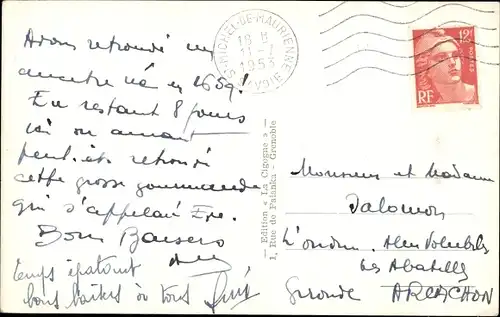 Avons retrouvé un
ancêtre né en 1659!
En restant 8 jours
ici on aurait
peut-être retrouvé
cette grosse gourmande
qui s'appelait Eve.
Bons Baisers
temps épatant
bons baisers à tous
ST-MICHEL-DE-MAURIENNE
18 H
11-7
1953
12F
POSTES
RF
— Edition « La Cigogne » —
1, Rue de Palanka - Grenoble
Monsieur et Madame
Salomon
les Abatilles
Gironde ARCACHON